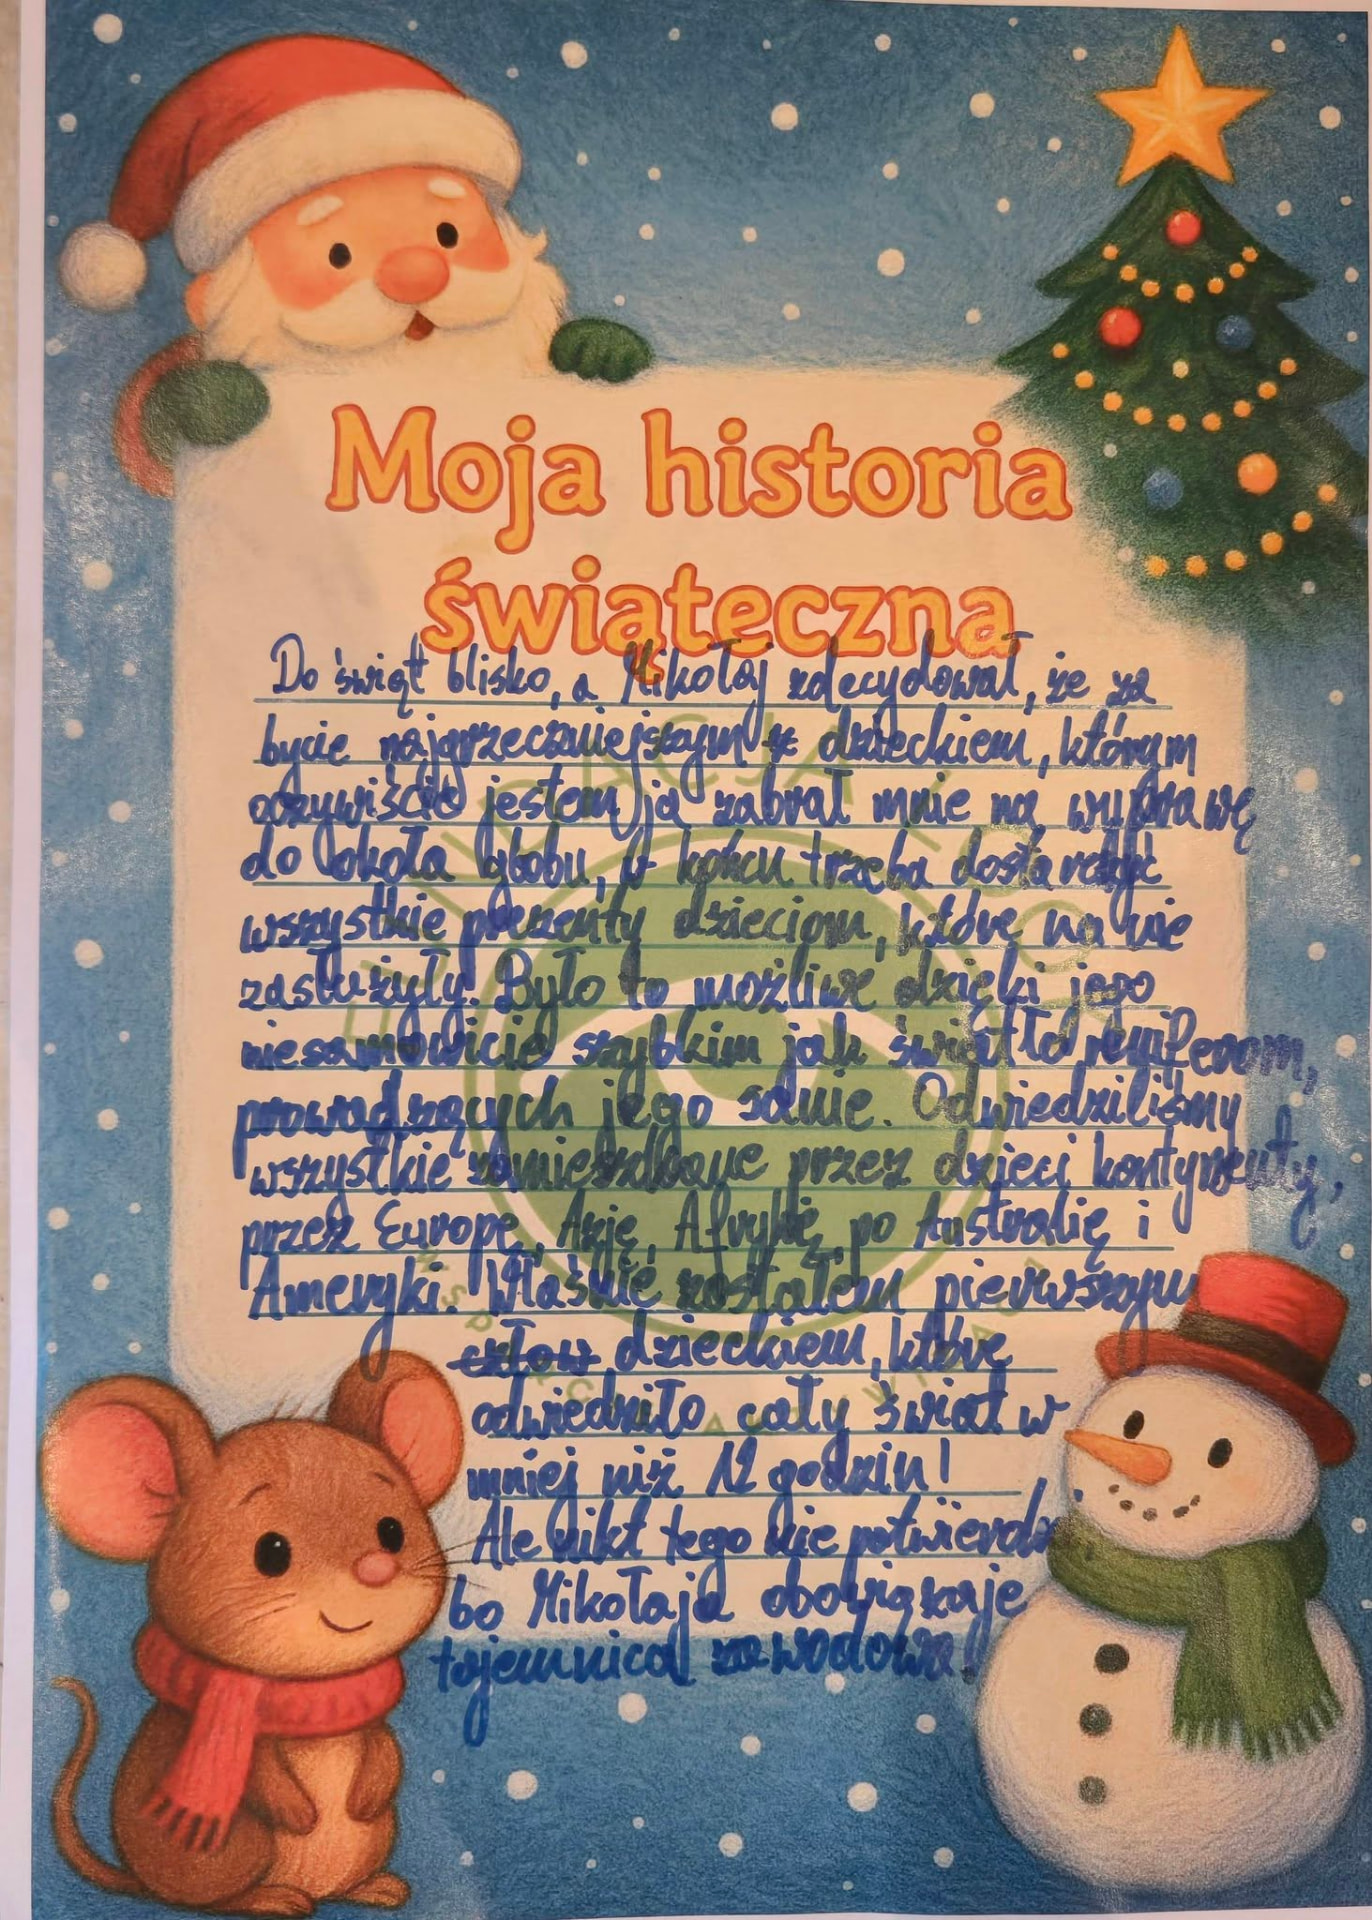 Moja historia
świąteczna
Do świąt blisko, a Mikołaj zdecydował, że za
bycie najgrzeczniejszym z dzieckiem, którym
oczywiście jestem ja zabrał mnie na wyprawę
do okoła globu, w końcu trzeba dostarczyć
wszystkie prezenty dzieciom, które na nie
zasłużyły. Było to możliwe dzięki jego
niesamowicie szybkim jak światło reniferom,
prowadzących jego sanie. Odwiedziliśmy
wszystkie zamieszkane przez dzieci kontynenty,
przez Europę, Azję, Afrykę, po Australię i
Ameryki. Właśnie zostałem pierwszym
człow dzieckiem, które
odwiedziło cały świat w
mniej niż 12 godzin!
Ale nikt tego nie potwierdzi
bo Mikołaja obowiązuje
tajemnica zawodowa!